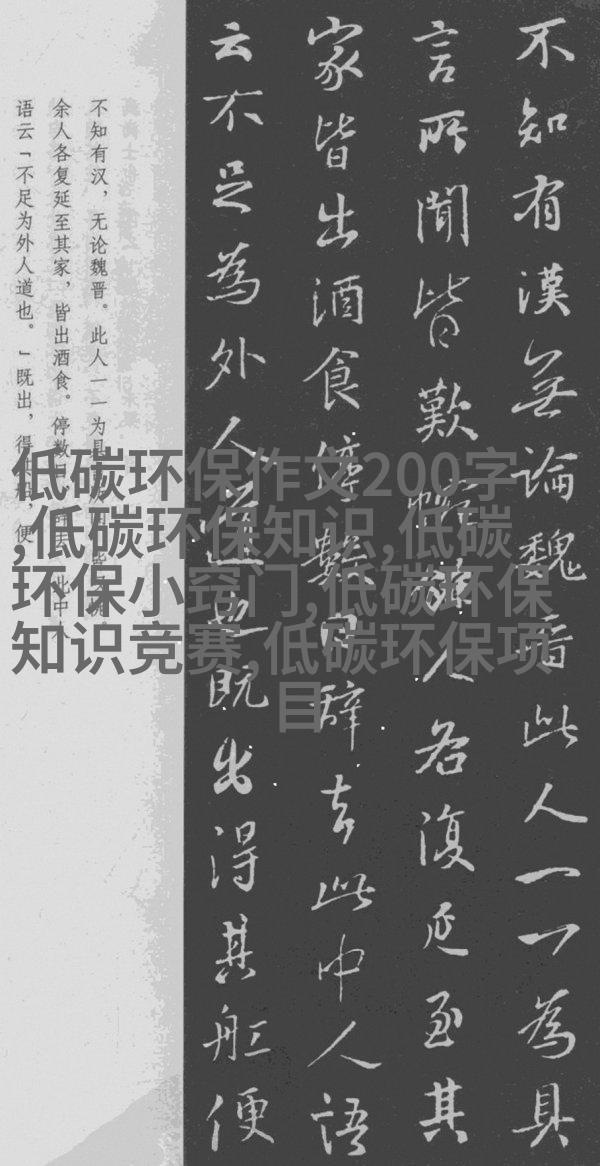 不知有漢無論魏晋此人一一為具
言所聞皆歎惋餘人各復延至其
家皆出酒食停數日辭去此中人語
云不足為外人道也既出得其舡便
不知有汉，无论魏晋。此人一一为具
余人各复延至其家，皆出酒食。停数日，辞去。此中人
语云「不足为外人道也。」既出，得其船，便
低碳环保作文200字
,低碳环保知识,低碳
环保小窍门,低碳环保
知识竞赛,低碳环保项
目